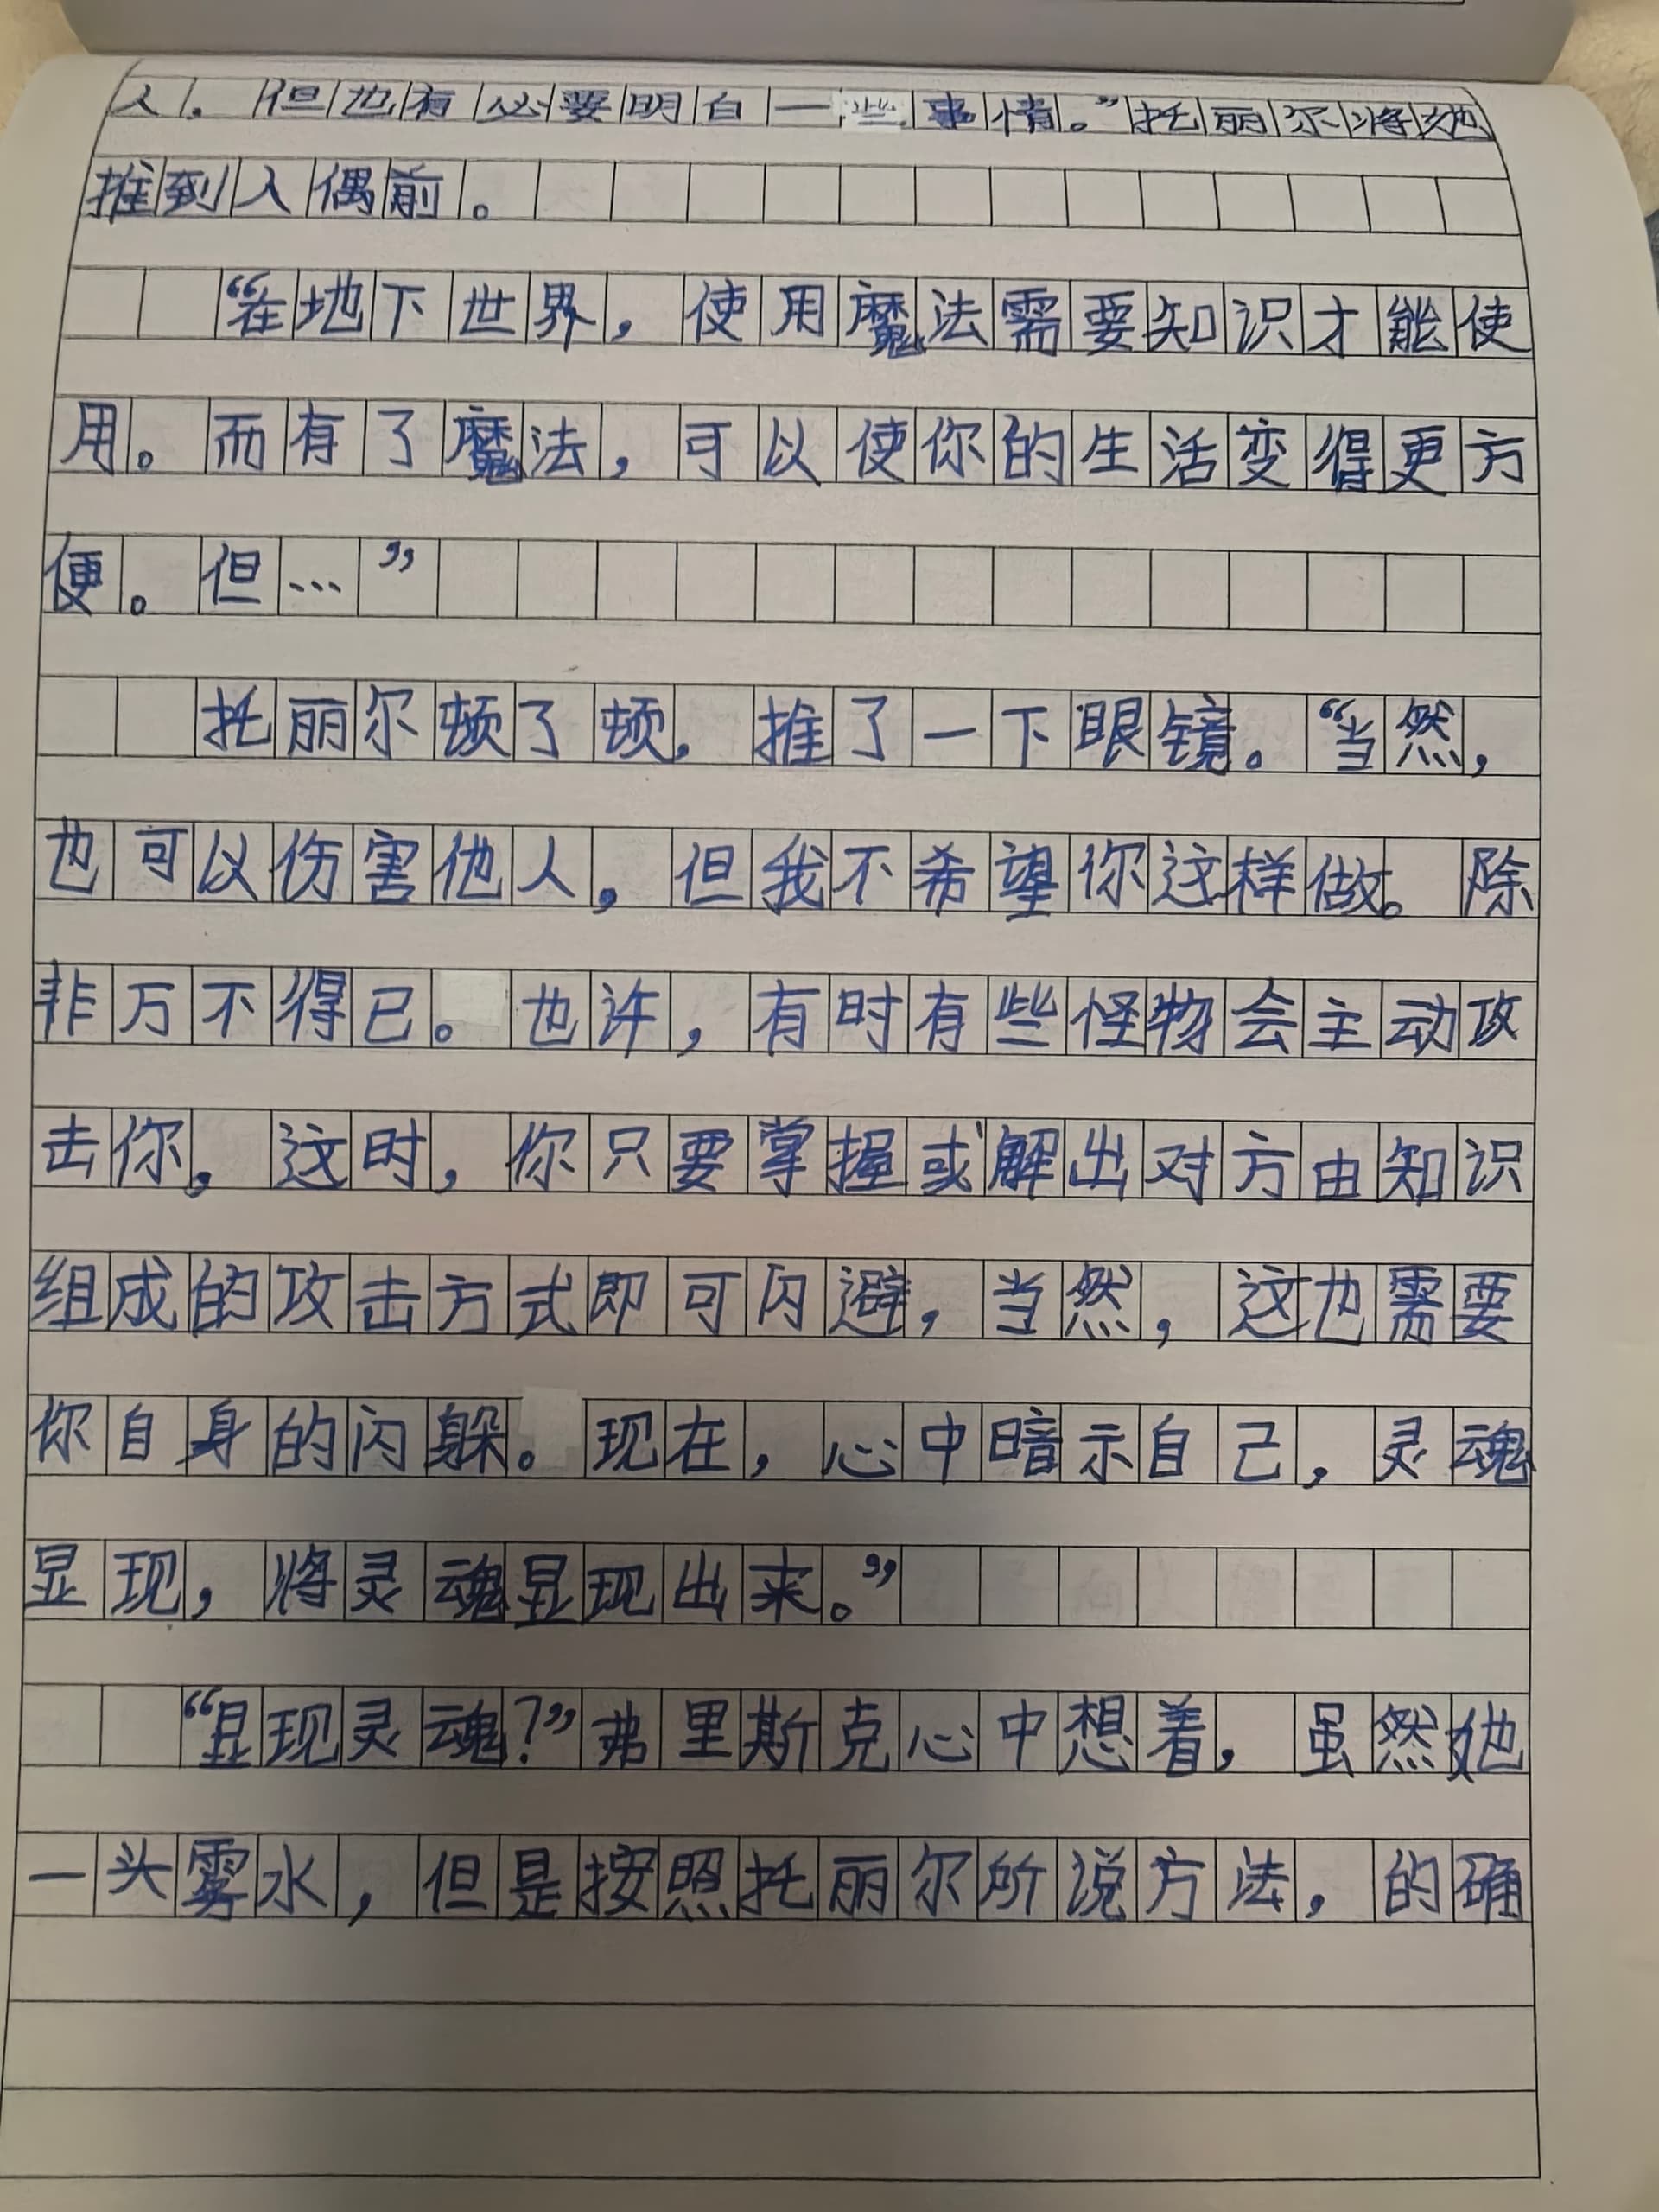 人。但也有必要明白一些事情。”托丽尔将她
推到人偶前。
“在地下世界，使用魔法需要知识才能使
用。而有了魔法，可以使你的生活变得更方
便。但…”
托丽尔顿了顿，推了一下眼镜。“当然，
也可以伤害他人，但我不希望你这样做。除
非万不得已。也许，有时有些怪物会主动攻
击你，这时，你只要掌握或解出对方由知识
组成的攻击方式即可闪避，当然，这也需要
你自身的闪躲。现在，心中暗示自己，灵魂
显现，将灵魂显现出来。”
“显现灵魂？”弗里斯克心中想着，虽然她
一头雾水，但是按照托丽尔所说方法，的确